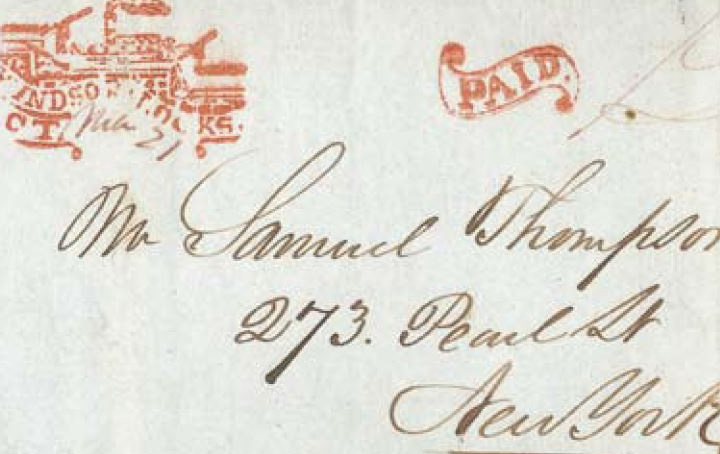 PAID.
INDSOR LOCKS.
CT.
Mar 21
Mr Samuel Thompson
273. Pearl St
New York